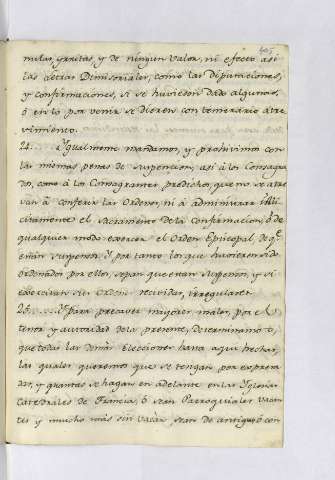 405
nulas, y rritas, y de ningun valor, ni efecto asi
las letras Dimisoriales, como las Diputaciones,
y confirmaciones, si se huviesen dado algunas,
ó en lo por venir se dieren con temerario atre-
vimiento.
24.... Ygualmente mandamos, y prohivimos con
las mismas penas de suspencion, asi á los Consagra-
dos, como á los Consagrantes predichos, que no se atre-
van á conferir las Ordenes, ni á administrar illi-
citamente el Sacramento de la Confirmacion, ó de
qualquier modo exercer el Orden Episcopal, de qe.
estàn suspensos. Y por tanto los que huvieren sido
ordenados por ellos, sepan que estan suspensos, y si
exercieren sus Ordenes recividas, irregulares.
25.... Y para precaver mayores males, por el
tenor y autoridad de la presente, determinamos
que todas las demàs Elecciones hasta aqui hechas,
las quales queremos que se tengan por expresa-
das, y quantas se hagan en adelante en las Yglesias
Catedrales de Francia, ó sean Parroquiales vacan-
tes y mucho mas sin vacàr, sean de antiguo, ó con